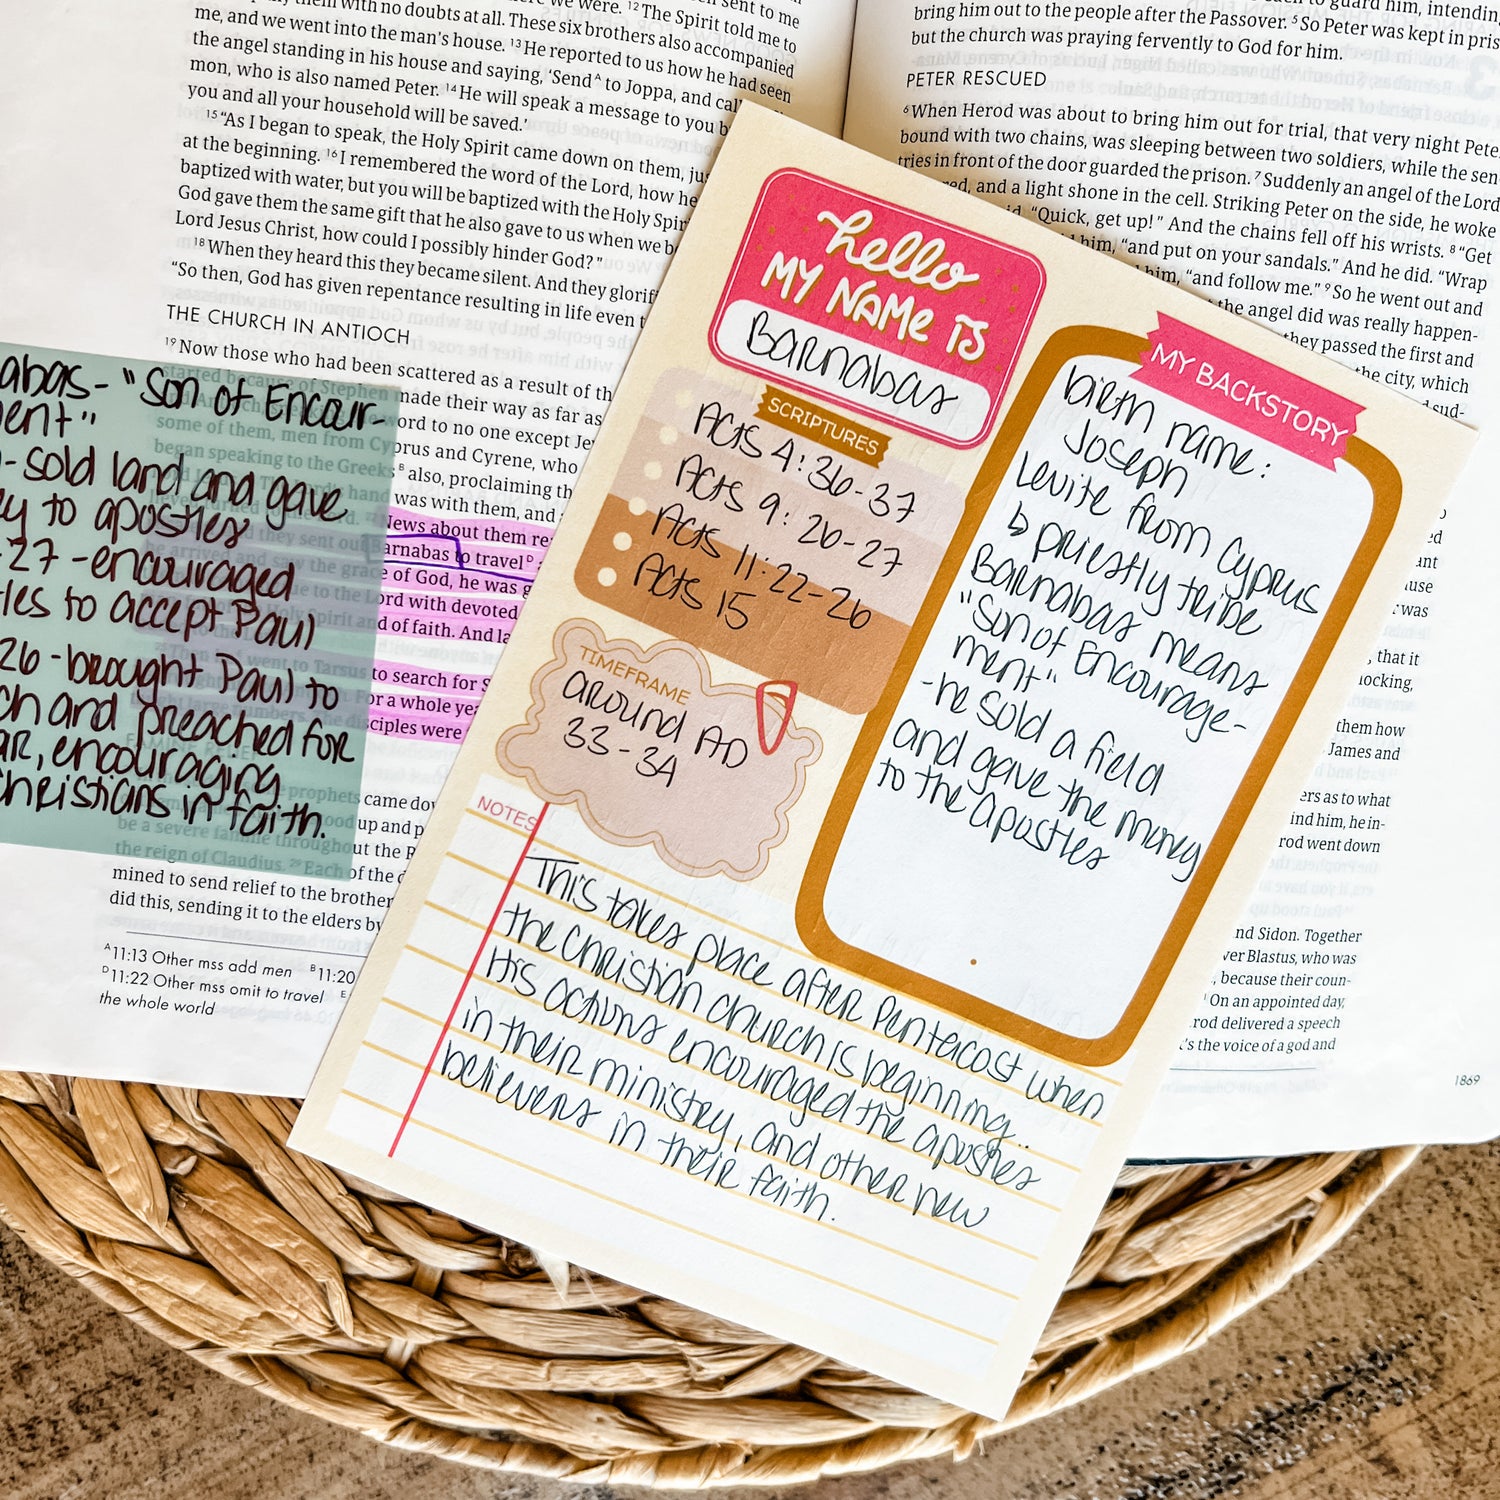 them with no doubts at all. These six brothers also accompanied
me, and we went into the man's house. 13 He reported to us how he had seen
the angel standing in his house and saying, 'Send A to Joppa, and call
mon, who is also named Peter. 14 He will speak a message to you b
you and all your household will be saved.'
15 "As I began to speak, the Holy Spirit came down on them, jus
at the beginning. 16 I remembered the word of the Lord, how he
baptized with water, but you will be baptized with the Holy Spir
God gave them the same gift that he also gave to us when we b
Lord Jesus Christ, how could I possibly hinder God?"
18 When they heard this they became silent. And they glorif
"So then, God has given repentance resulting in life even t
THE CHURCH IN ANTIOCH
19 Now those who had been scattered as a result of th
started because of Stephen made their way as far as
ord to no one except Je
some of them, men from Cyprus and Cyrene, who
began speaking to the Greeks B also, proclaiming th
was with them, and
News about them re
they sent out Barnabas to travel D
he arrived and saw the grace of God, he was g
to the Lord with devoted
Spirit and of faith. And la
Then he went to Tarsus to search for S
For a whole yea
large numbers. The disciples were
FAMINE RELIEF
prophets came dow
stood up and p
be a severe famine throughout the R
the reign of Claudius. 29 Each of the d
mined to send relief to the brother
did this, sending it to the elders by
A 11:13 Other mss add men B 11:20
D 11:22 Other mss omit to travel E
the whole world
abas - "Son of Encour-
ment"
- sold land and gave
ey to apostles
-27 - encouraged
tles to accept Paul
26 - brought Paul to
ch and preached for
ar, encouraging
Christians in faith.
hello
MY NAME IS
Barnabas
SCRIPTURES
Acts 4:36-37
Acts 9:26-27
Acts 11:22-26
Acts 15
TIMEFRAME
around AD
33-34
MY BACKSTORY
birth name:
Joseph
Levite from Cyprus
↳ priestly tribe
Barnabas means
"Son of Encourage-
ment"
- he sold a field
and gave the money
to the apostles
NOTES
This takes place after Pentacost when
the Christian church is beginning..
His actions encouraged the apostles
in their ministry, and other new
believers in their faith.
guard him, intendin
bring him out to the people after the Passover. 5 So Peter was kept in pris
but the church was praying fervently to God for him.
PETER RESCUED
6 When Herod was about to bring him out for trial, that very night Pete
bound with two chains, was sleeping between two soldiers, while the sen
tries in front of the door guarded the prison. 7 Suddenly an angel of the Lord
red, and a light shone in the cell. Striking Peter on the side, he woke
"Quick, get up!" And the chains fell off his wrists. 8 "Get
him, "and put on your sandals." And he did. "Wrap
him, "and follow me." 9 So he went out and
the angel did was really happen-
they passed the first and
the city, which
sud-
, that it
locking,
them how
James and
ers as to what
ind him, he in-
rod went down
nd Sidon. Together
ver Blastus, who was
, because their coun-
On an appointed day,
rod delivered a speech
's the voice of a god and
1869